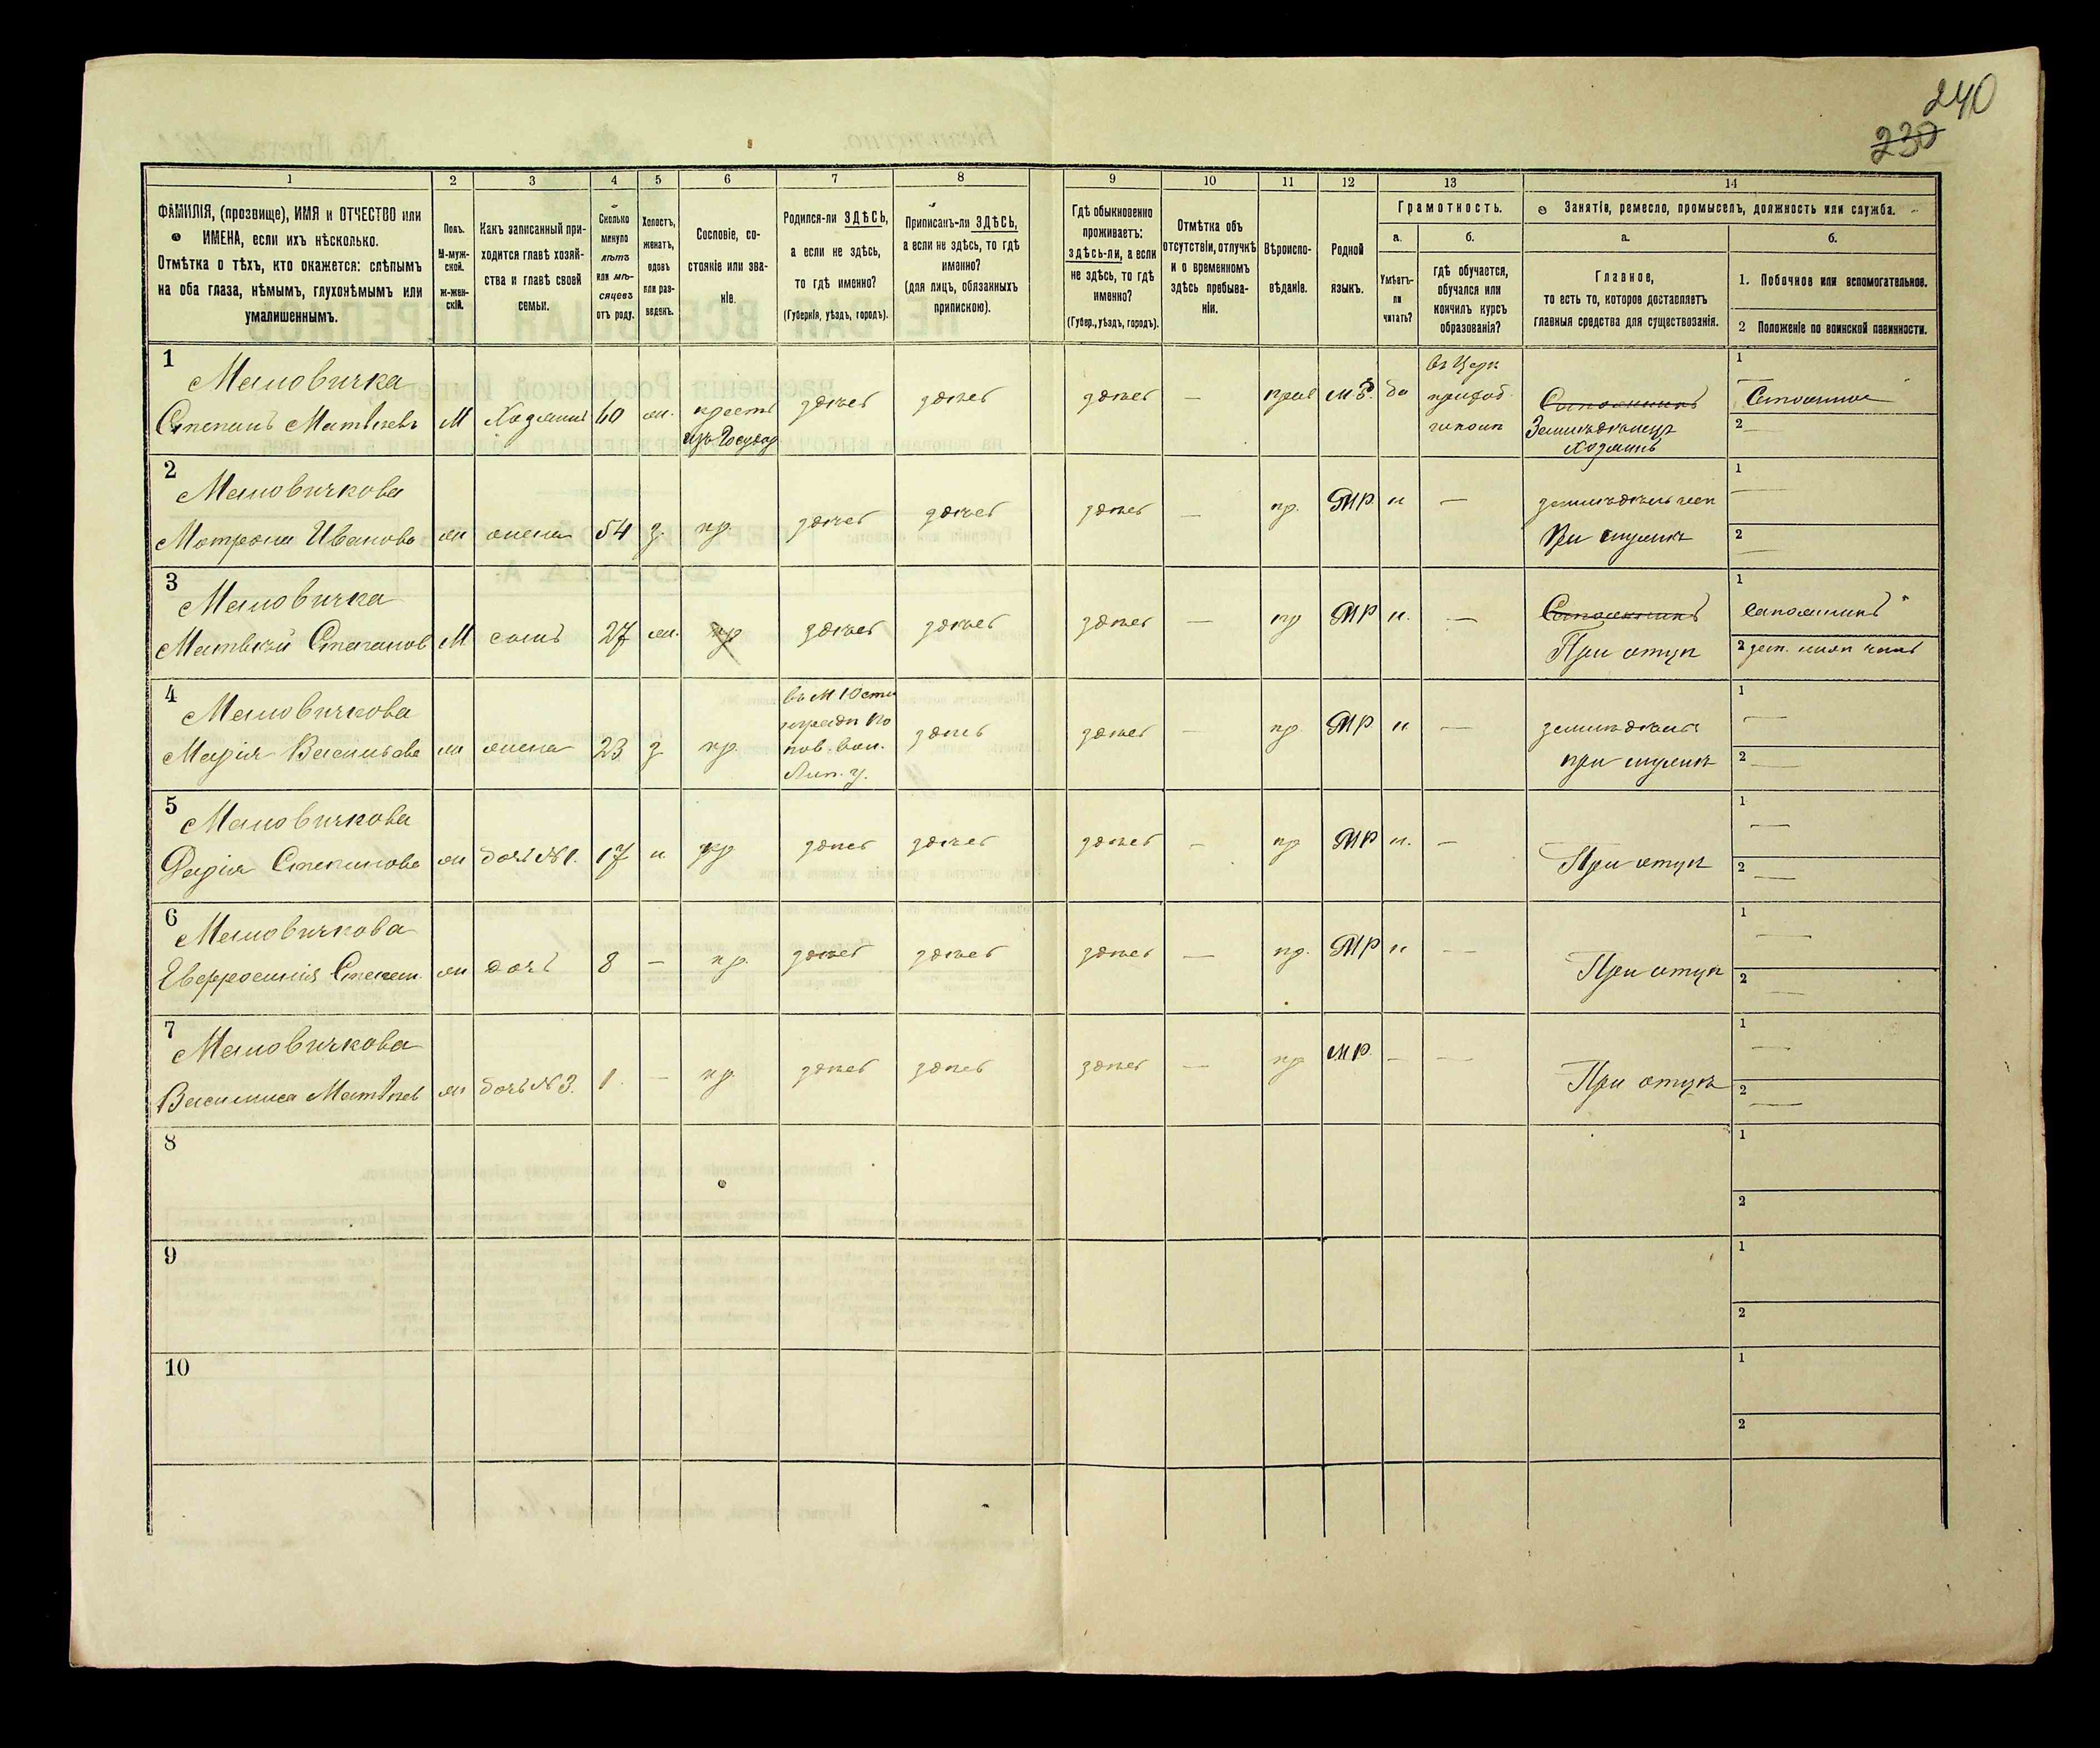 240
230
1 2 3 4 5 6 7 8 9 10 11 12 13 14
ФАМИЛІЯ, (прозвище), ИМЯ и ОТЧЕСТВО или
ИМЕНА, если ихъ нѣсколько.
Отмѣтка о тѣхъ, кто окажется: слѣпымъ
на оба глаза, нѣмымъ, глухонѣмымъ или
умалишеннымъ.
Полъ.
М-муж-
ской.
ж-жен-
скій.
Какъ записанный при-
ходится главѣ хозяй-
ства и главѣ своей
семьи.
Сколько
минуло
лѣтъ
или мѣ-
сяцевъ
отъ роду.
Холостъ,
женатъ,
вдовъ
или раз-
веденъ.
Сословіе, со-
стояніе или зва-
ніе.
Родился-ли ЗДѢСЬ,
а если не здѣсь,
то гдѣ именно?
(Губернія, уѣздъ, городъ).
Приписанъ-ли ЗДѢСЬ,
а если не здѣсь, то гдѣ
именно?
(для лицъ, обязанныхъ
припискою).
Гдѣ обыкновенно
проживаетъ:
здѣсь-ли, а если
не здѣсь, то гдѣ
именно?
(Губер., уѣздъ, городъ).
Отмѣтка объ
отсутствіи, отлучкѣ
и о временномъ
здѣсь пребыва-
ніи.
Вѣроиспо-
вѣданіе.
Родной
языкъ.
Грамотность.
а.
Умѣетъ-
ли
читать?
б.
гдѣ обучается,
обучался или
кончилъ курсъ
образованія?
Занятіе, ремесло, промыселъ, должность или служба.
а.
Главное,
то есть то, которое доставляетъ
главныя средства для существованія.
б.
1. Побочное или вспомогательное.
2 Положеніе по воинской повинности.
1
Маловичка
Степанъ Матвѣевъ М Хозяинъ 60 ж. крест
изъ Государ здѣсь здѣсь здѣсь — прав М.Р. да
въ Церк
приход
школѣ
Сапожникъ
Земледѣлецъ
Хозяинъ
1
2 —
2
Маловичкова
Матрона Иванова ж жена 54 з. кр. здѣсь здѣсь здѣсь — пр. МР н —
При мужѣ
1 —
2 —
3
Маловичка
Матвѣй Степанов М сынъ 27 ж. кр здѣсь здѣсь здѣсь — пр МР н. —
Сапожникъ
При отцѣ
1 Сапожникъ
2
4
Маловичкова
Марія Васильева ж жена 23 з кр.
здѣсь здѣсь — пр. МР н —
при мужѣ
1 —
2 —
5
Маловичкова
Дарія Степанова ж дочь №1. 17 н. кр здѣсь здѣсь здѣсь — пр МР н. —
При отцѣ
1 —
2 —
6
Маловичкова
Евфросинія Степан. ж дочь 8 — кр. здѣсь здѣсь здѣсь — пр. МР н —
При отцѣ
1 —
2 —
7
Маловичкова
Василиса Матвѣев ж дочь №3. 1 — кр здѣсь здѣсь здѣсь — пр МР. — —
При отцѣ
1 —
2 —
8
1
2
9
1
2
10
1
2